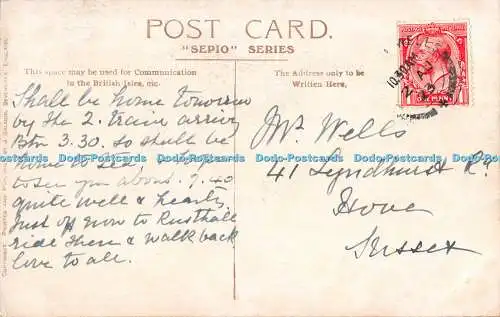 POST CARD.
"SEPIO" SERIES
This space may be used for Communication
in the British Isles, etc.
The Address only to be
Written Here,
Shall be home tomorrow
by the 2. train arriving
Btn 3.30. So shall be
home to tea,
to see you about 7.40
quite well & hearty
Just off now to Rusthall
ride there & walk back
love to all.
Mr. Wells
41 Lyndhurst Rd.
Hove
Sussex
10.30 AM
AU
13
Dodo-Postcards.com Dodo-Postcards.com Dodo-Postcards.com Dodo-Postcards.com